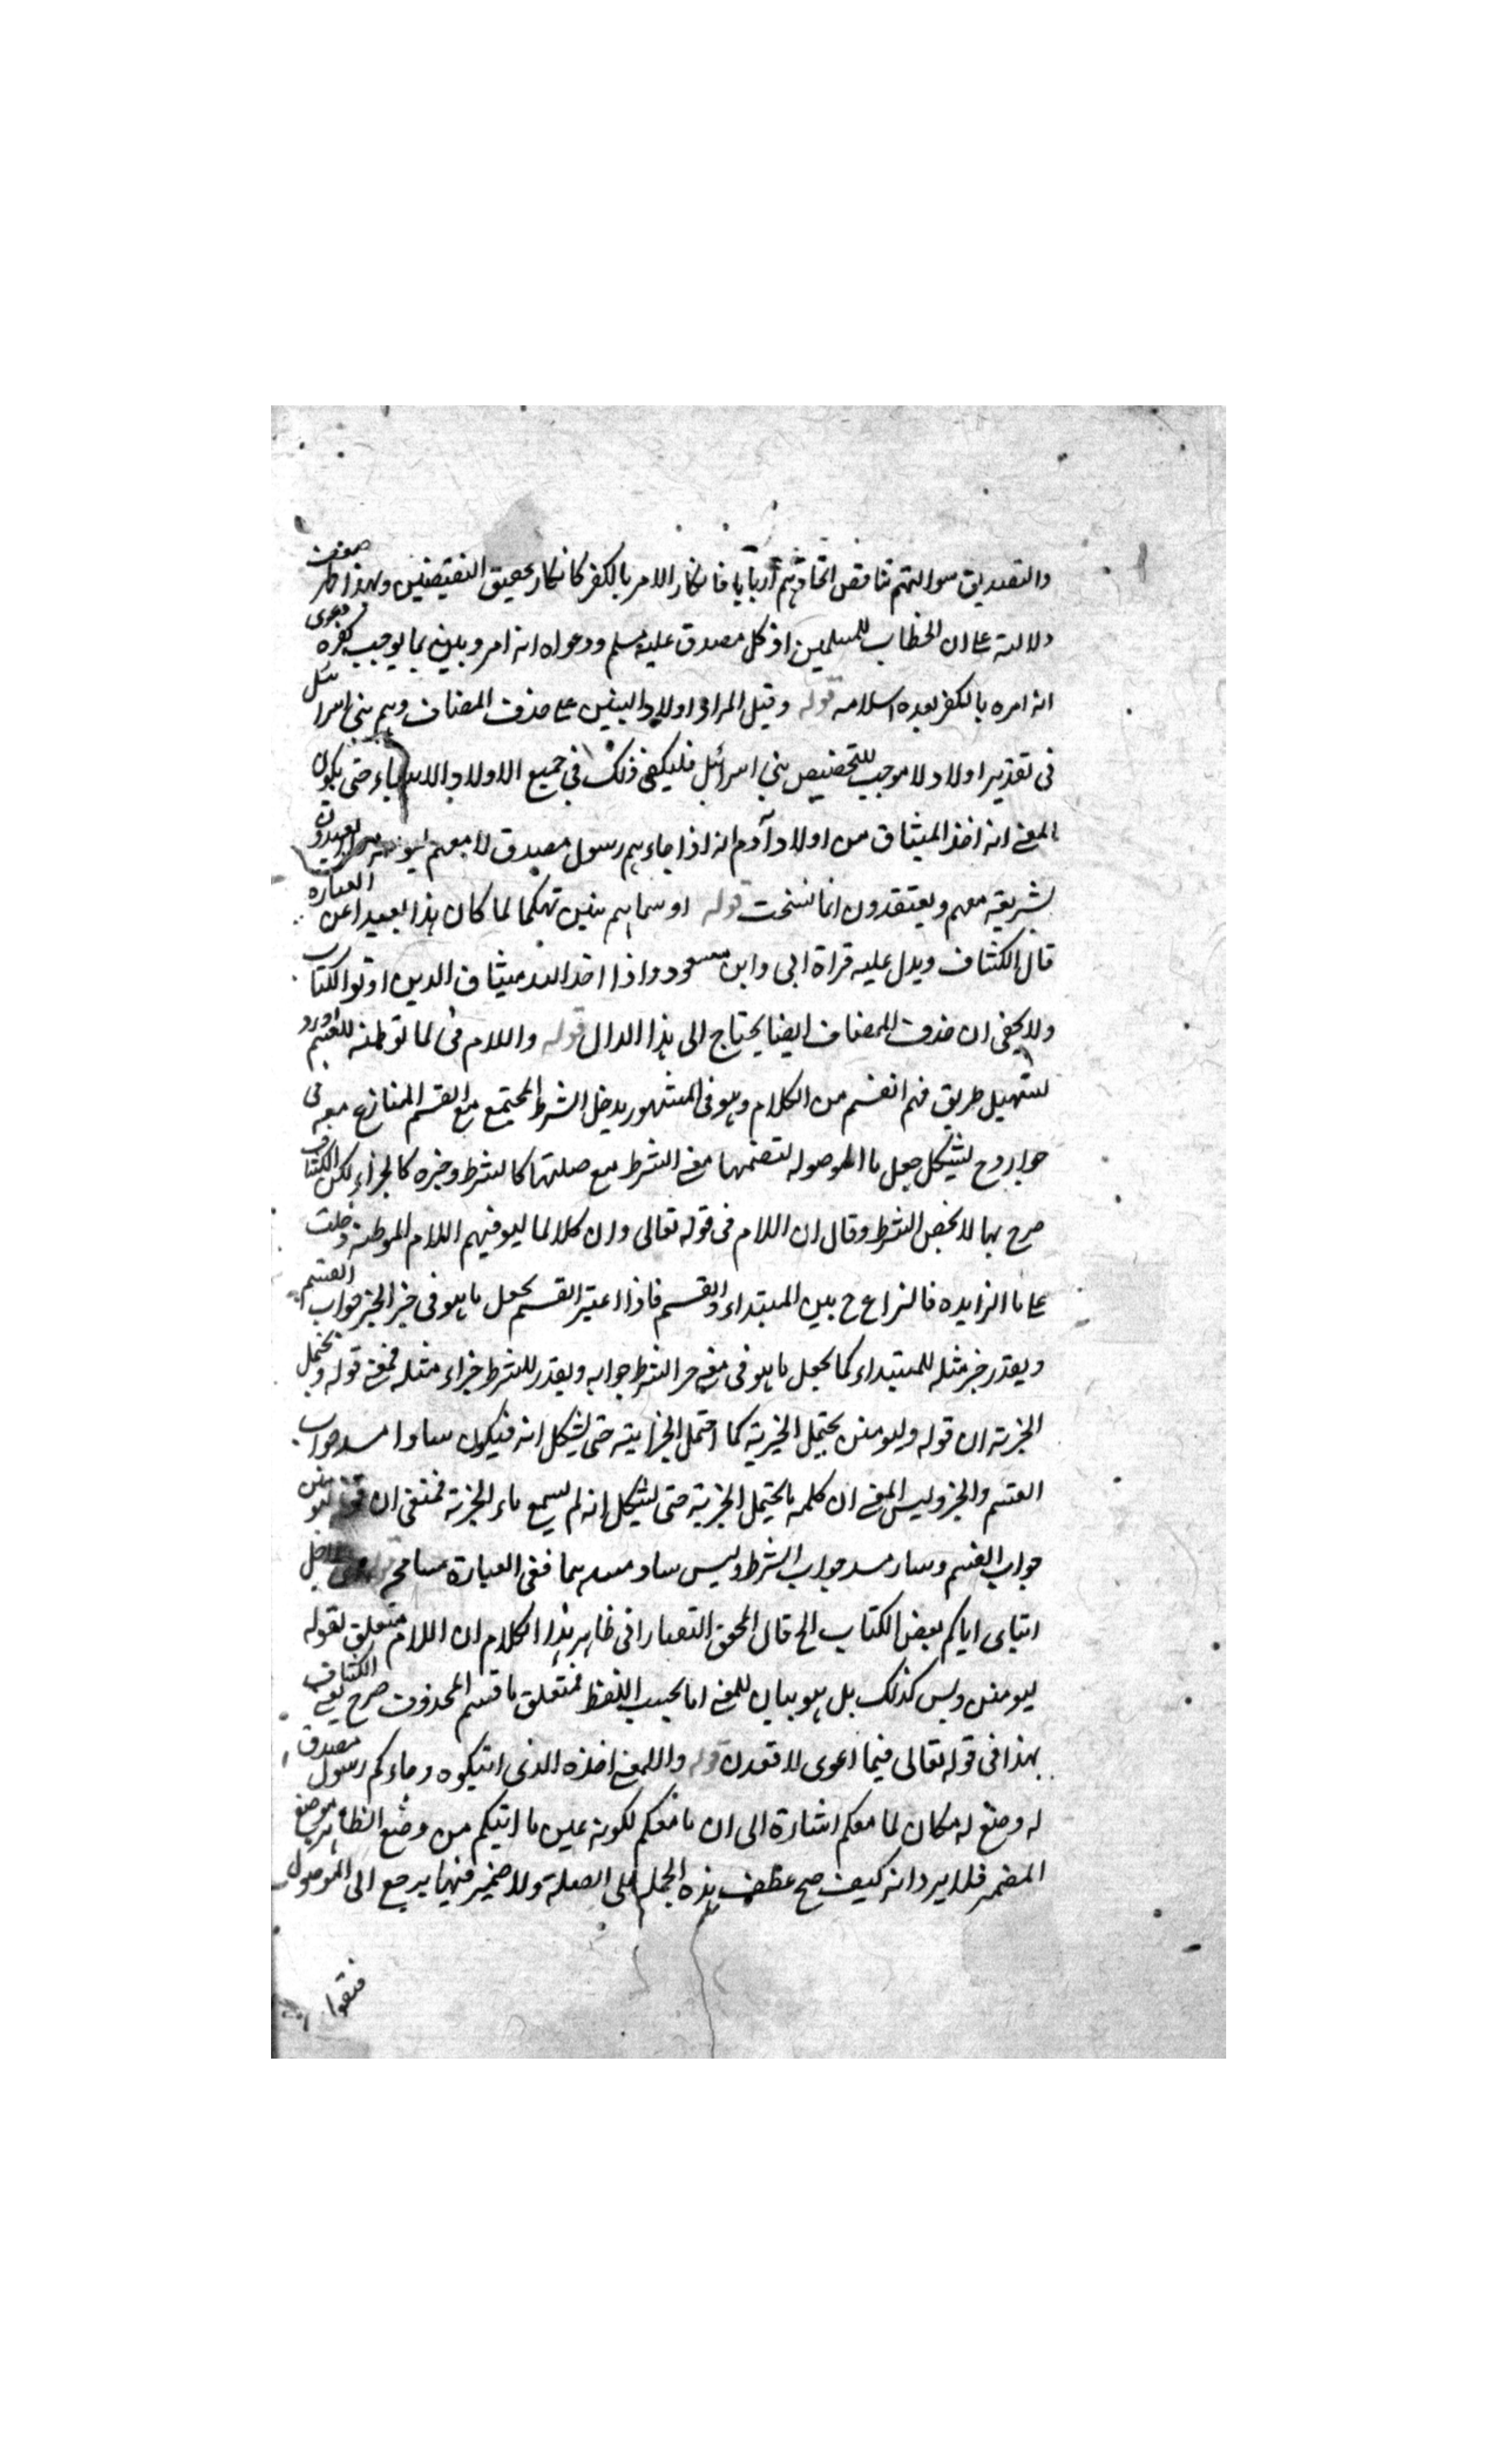 والتصديق سوالتهم تناقض اتخاذهم اربابا فانكار الامر بالكفر كانكار تحقيق النقيضين وبهذا ظهر ضعف
دلالته على ان الخطاب للمسلمين اذ كل مصدق عليه مسلم ودعواه انه امر وبين بما يوجب كفره دعوى
انه امره بالكفر بعده اسلامه قوله وقيل المراد اولاد النبيين على حذف المضاف وهم بنى اسرائيل
فى تقدير اولاد لا موجب للتخصيص بنى اسرائيل فليكفى ذلك فى جميع الاولاد الانبياء حتى يكون
المعنى انه اخذ الميثاق من اولاد آدم انه اذا جاءهم رسول مصدق لا معهم يعبدون
بشريعته معهم ويعتقدون انها نسخت قوله او سماهم نبيين تهكما لما كان هذا بعيدا عن العبارة
قال الكشاف ويدل عليه قراة ابى وابن مسعود واذا اخذ الله ميثاق الذين اوتو الكتاب
ولا يخفى ان حذف المضاف ايضا يحتاج الى هذا الدال قوله واللام فى لما توطئة للقسم اورد
لتسهيل طريق فهم القسم من الكلام وهو فى المشهور يدخل الشرط المجتمع مع القسم المنازع معه فى
جوابه وح يشكل جعل ما الموصوله لتضمنها معنى الشرط مع صلتها كالشرط وخبره كالجزاء لكن الكشاف
صرح بها لا يخص الشرط وقال ان اللام فى قوله تعالى وان كلا لما ليوفينهم اللام الموطئة دخلت
على ما الزايده فالنزاع ح بين المبتداء والقسم فاذا اعتبر القسم يجعل ما هو فى خبر الخبر جواب القسم
ويقدر خبر مثله للمبتداء كما يجعل ما هو فى معنى جزاء الشرط جوابه ويقدر للشرط جزاء مثله فمعنى قوله ويحتمل
الخبرية ان قوله وليومنن يحتمل الخبرية كما احتمل الجزايية حتى يشكل انه فيكون سادا مسد جواب
القسم والخبر وليس المعنى ان كلمه ما يحتمل الخبرية حتى يشكل انه لم يسمع ماء الخبرية فمعنى ان قوله ليومنن
جواب القسم وساد مسد جواب الشرط وليس ساد مسدهما ففى العبارة مسامحه اجل
ايتاى اياكم بعض الكتاب الخ قال المحقق التفتازانى ظاهر هذا الكلام ان اللام متعلق بقوله
ليومنن وليس كذلك بل هو بيان للمعنى اما بحسب اللفظ فمتعلق باقسم المحذوف صرح الكشاف
بهذا فى قوله تعالى فبما اغوى لاقعدن قوله والمعنى اخذه الذى اتيكموه وجاءكم رسول مصدق
له وضع له مكان لما معكم اشارة الى ان ما معكم لكونه عين ما اتيكم من وضع الظاهر موضع
المضمر فلا يرد انه كيف صح عطف هذه الجملة على الصلة ولا ضمير فيها يرجع الى الموصول
فتقوا